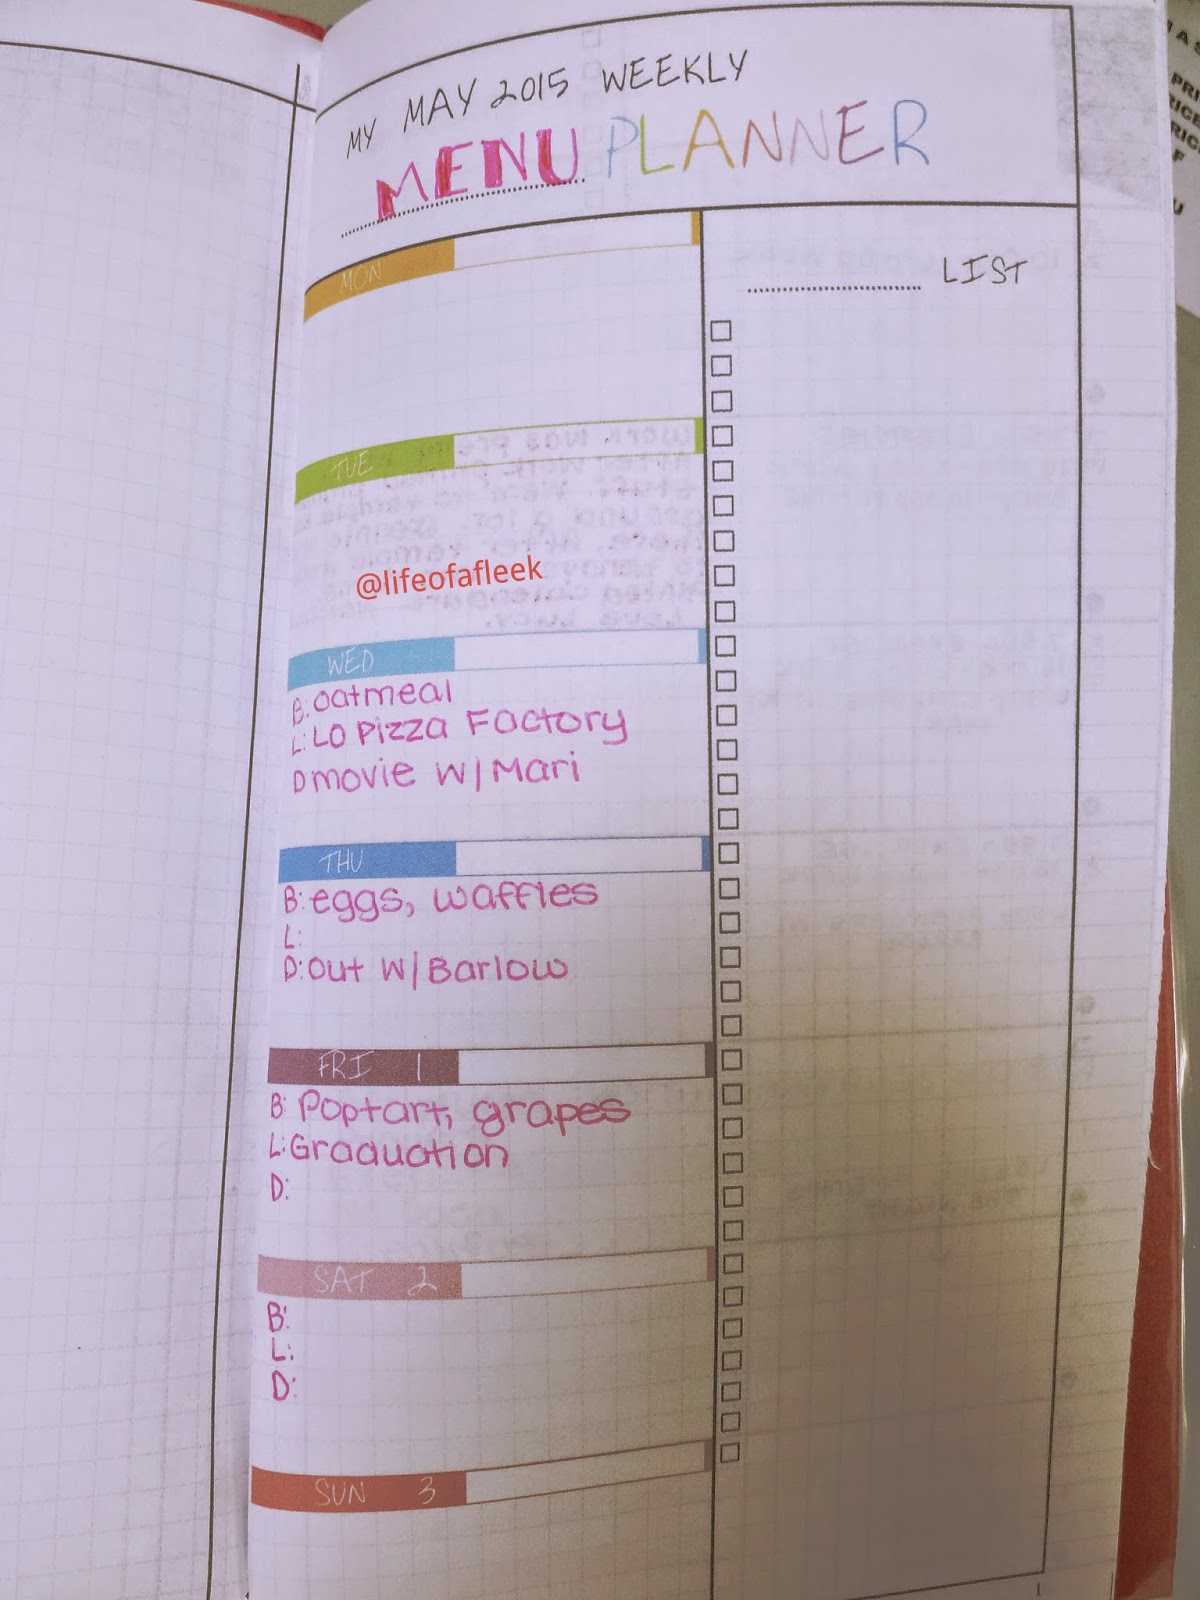 MY MAY 2015 WEEKLY
MENU PLANNER
LIST
MON
TUE
@lifeofafleek
WED
B: oatmeal
L: LO Pizza Factory
D movie w/Mari
THU
B: eggs, waffles
L:
D: out w/Barlow
FRI 1
B: Poptart, grapes
L: Graduation
D:
SAT 2
B:
L:
D:
SUN 3
1